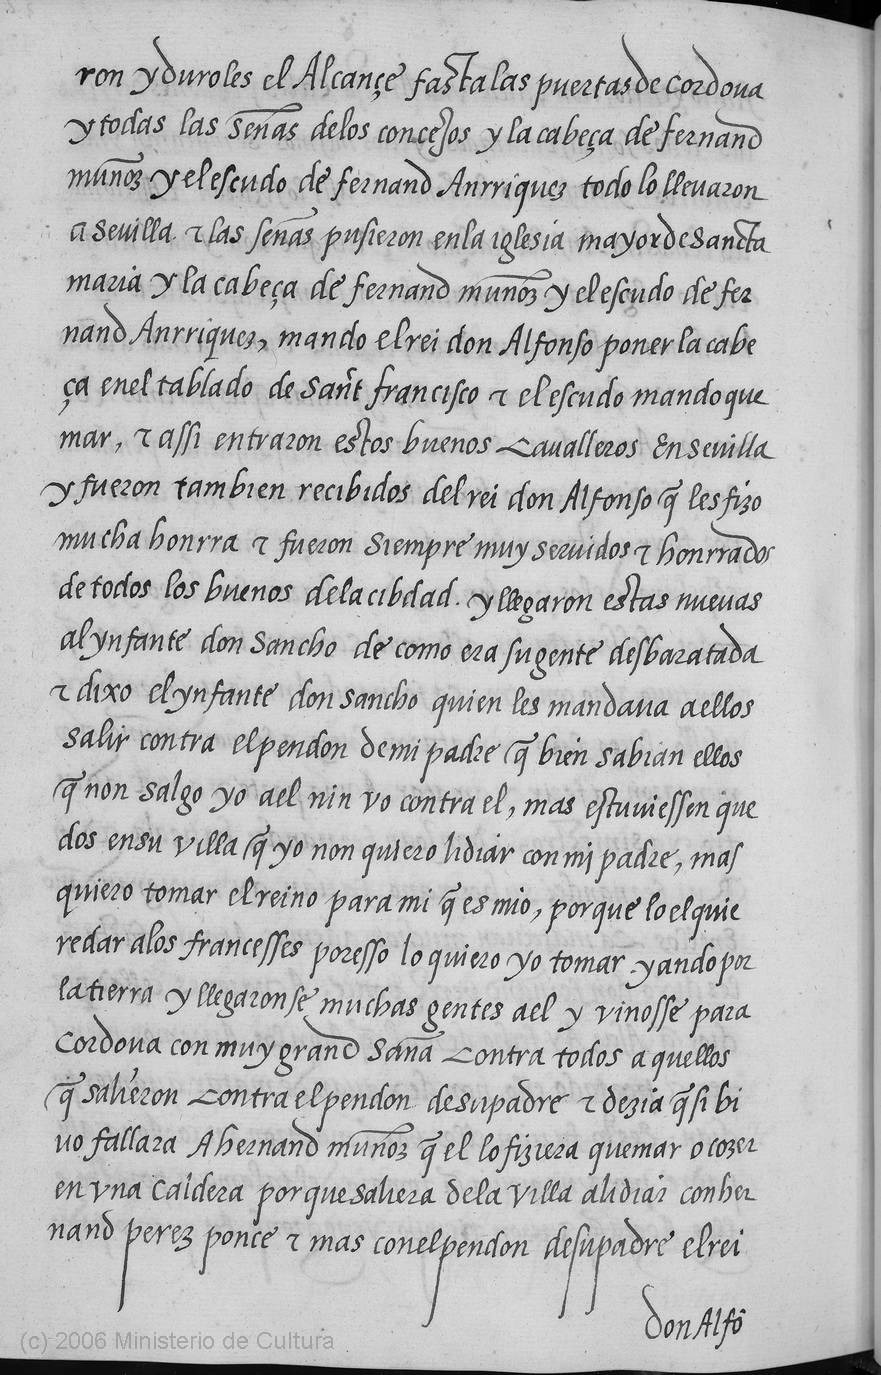 ron y duroles el Alcançe fasta las puertas de cordoua
y todas las señas delos concejos y la cabeça de fernand
muñoz y el escudo de fernand Anrriquez todo lo lleuaron
a seuilla τ las señas pusieron enla iglesia mayor de Sancta
maria y la cabeça de fernand muñoz y el escudo de fer
nand Anrriquez, mando el rei don Alfonso poner la cabe
ça enel tablado de Sañt francisco τ el escudo mando que
mar, τ assi entraron estos buenos Caualleros En seuilla
y fueron tambien recibidos del rei don Alfonso q̃ les fizo
mucha honrra τ fueron siempre muy seruidos τ honrrados
de todos los buenos dela cibdad. y llegaron estas nueuas
al ynfante don Sancho de como era su gente desbaratada
τ dixo el ynfante don sancho quien les mandaua aellos
salir contra el pendon de mi padre q̃ bien sabian ellos
q̃ non salgo yo ael nin vo contra el, mas estuuiessen que
dos en su villa q̃ yo non quiero lidiar con mi padre, mas
quiero tomar el reino para mi q̃ es mio, porque lo el quie
redar alos francesses poresso lo quiero yo tomar. y ando por
la tierra y llegaronse muchas gentes ael y vinosse para
Cordoua con muy grand Saña Contra todos aquellos
q̃ salieron Contra el pendon de su padre τ dezia q̃ si bi
uo fallara A hernand muñoz q̃ el lo fiziera quemar o cozer
en vna Caldera por que saliera dela villa a lidiar con her
nand perez ponce τ mas conel pendon de su padre el rei
don Alfõ
(c) 2006 Ministerio de Cultura